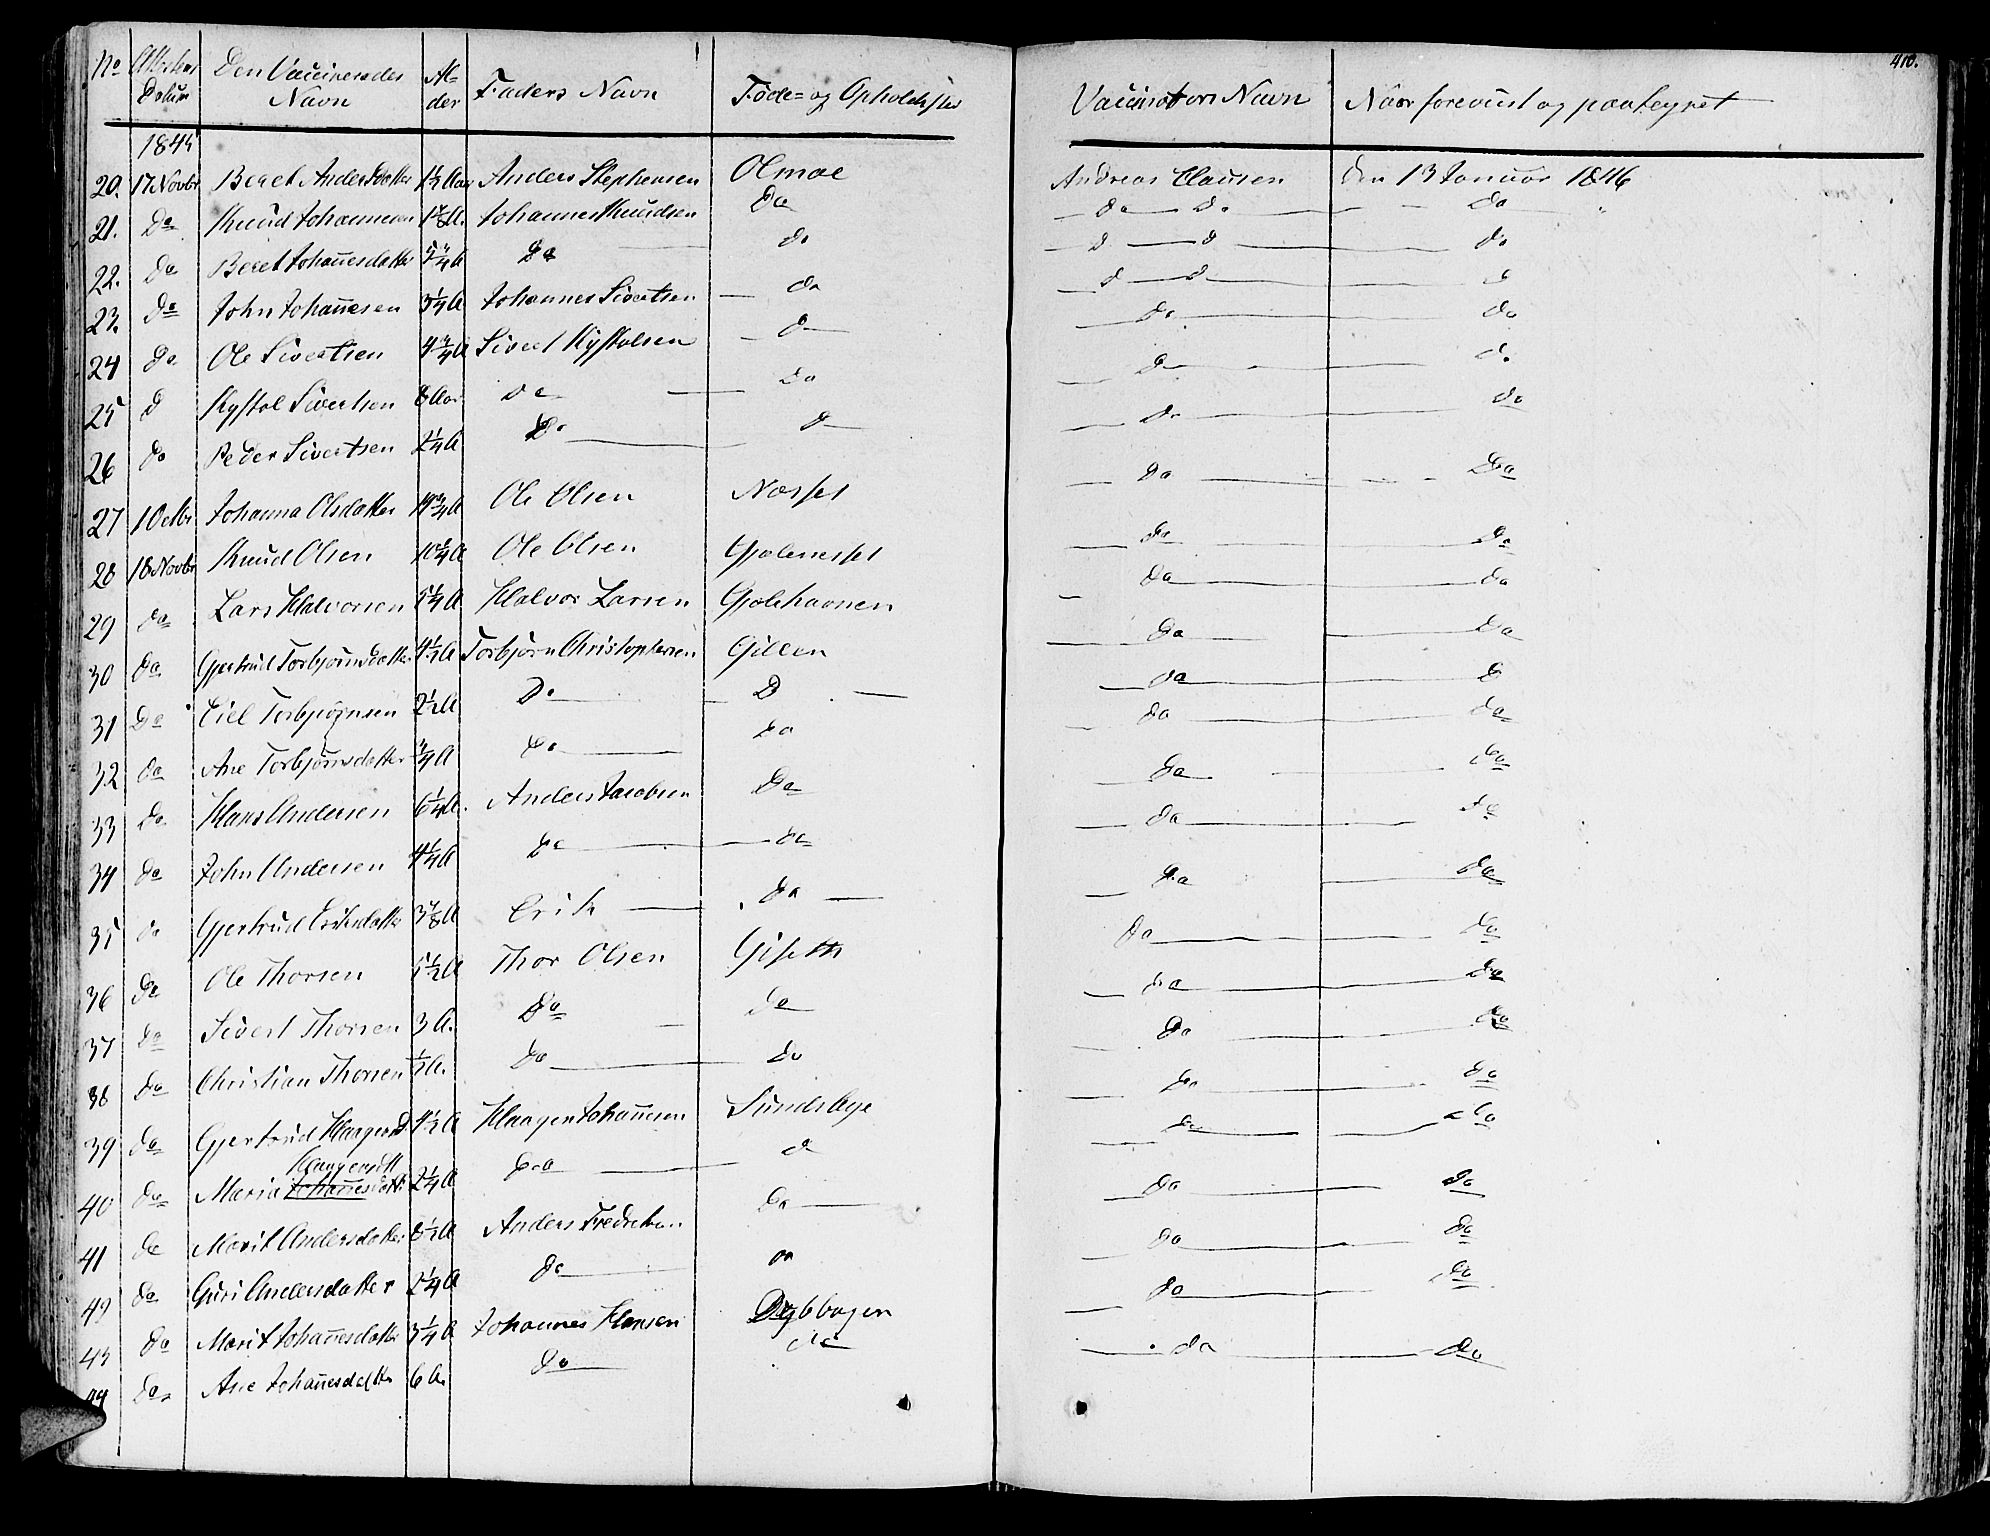 410.
No Attestens Datum Den Vaccineredes Navn Alder Faders Navn Føde= og Opholdssted Vaccinateurs Navn Naar forevist og paategnet
1845
20. 17 Novbr Beret Andersdatter 1½ Aar Anders Stephensen Olmoe Andreas Clausen den 13 Januar 1846
21. Do Knud Johannesen Johannes Knudsen Do Do Do Do
22. Do Beret Johan̄esdatter 5¾ A Do Do D D Do
23. Do John Johan̄esen 3¼ A Johannes Sivertsen Do D D D
24 Do Ole Sivertsen 4¾ A Sivert Kystolsen D Do Do
25 D Kystol Sivertsen 8 Aar Do Do Do Do
26 Do Peder Sivertsen 2¼ A Do D Do Do
27 Johanna Olsdatter Ole Olsen Do Do
28 18 Novbr Knud Olsen 10¼ A Ole Olsen Do Do
29 Do Lars Halvorsen Halvor Larsen Do Do
30 Do Gjertrud Torbjörnsdatter 4½ A Torbjörn Christophersen Do Do
31 Do Eiel Torbjörnsen 2½ A Do D Do D
32 Do Ane Torbjörnsdatter ¾ A Do Do Do Do
33 Do Hans Andersen 6¼ A. Anders Jacobsen Do Do Do
34 Do John Andersen 4¼ A Do Do Do Do
35 Do Gjertrud Eriksdatter Erik Do Do Do
36 Do Ole Thorsen 5½ A Thor Olsen Giseth Do Do
37 Do Sivert Thorsen 3 A. Do Do Do Do
38 Do Christian Thorsen ½ A. Do Do Do Do
39 Do Gjertrud Haagensd 4½ A Haagen Johan̄esen Sundsbye Do Do
40 Do Maria Johan̄esdatt Haagensdtt 2¼ A Do D Do Do
41 Do Marit Andersdatter 8½ A Anders Fredriksen Do Do Do
42 Do Guri Andersdatter 2¼ A Do Do Do Do
43 Do Marit Johan̄esdatter 3¼ A Johannes Hansen Do Do
44 Do Ane Johan̄esdatter 6 A. Do Do Do Do